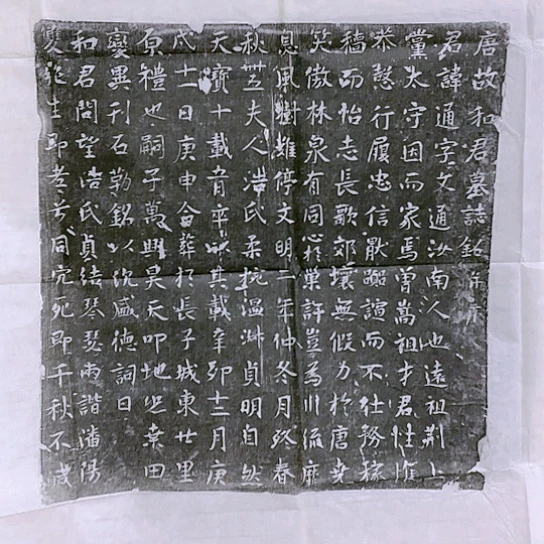 唐故和君墓誌銘并序
君諱通字文通汝南人也遠祖荊上
黨太守因而家焉曾嵩祖才君性惟
恭慤行履忠信猒囂諠而不仕務稼
穡而怡志長歌郊壤無假力於唐堯
笑傲林泉有同心於巢許豈為川流靡
息風樹難停文明二年仲冬月終春
秋卅五夫人浩氏柔婉温淋貞明自然
天寶十載音卒以其載辛卯十二月庚
戌十一日庚申合葬於長子城東廿里
原禮也嗣子萬興昊天叩地恐桒田
變異刊石勒銘以紀盛德詞曰
和君問望浩氏貞結琴瑟而諧潘陽
雙 生即 同穴死即千秋不滅